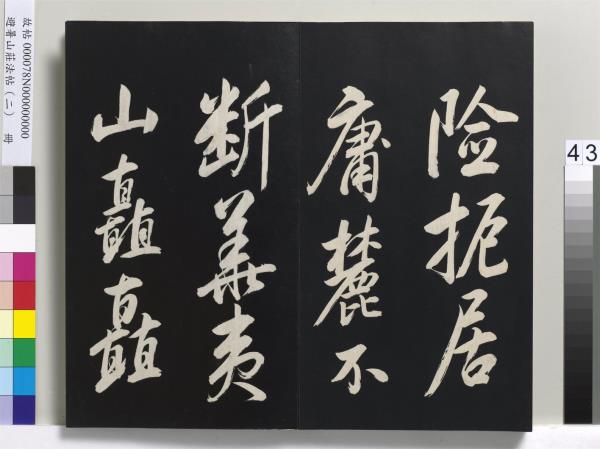 险扼居
庸麓不
断華夷
山矗矗
故帖 000078N000000000
避暑山莊法帖(二) 冊
43